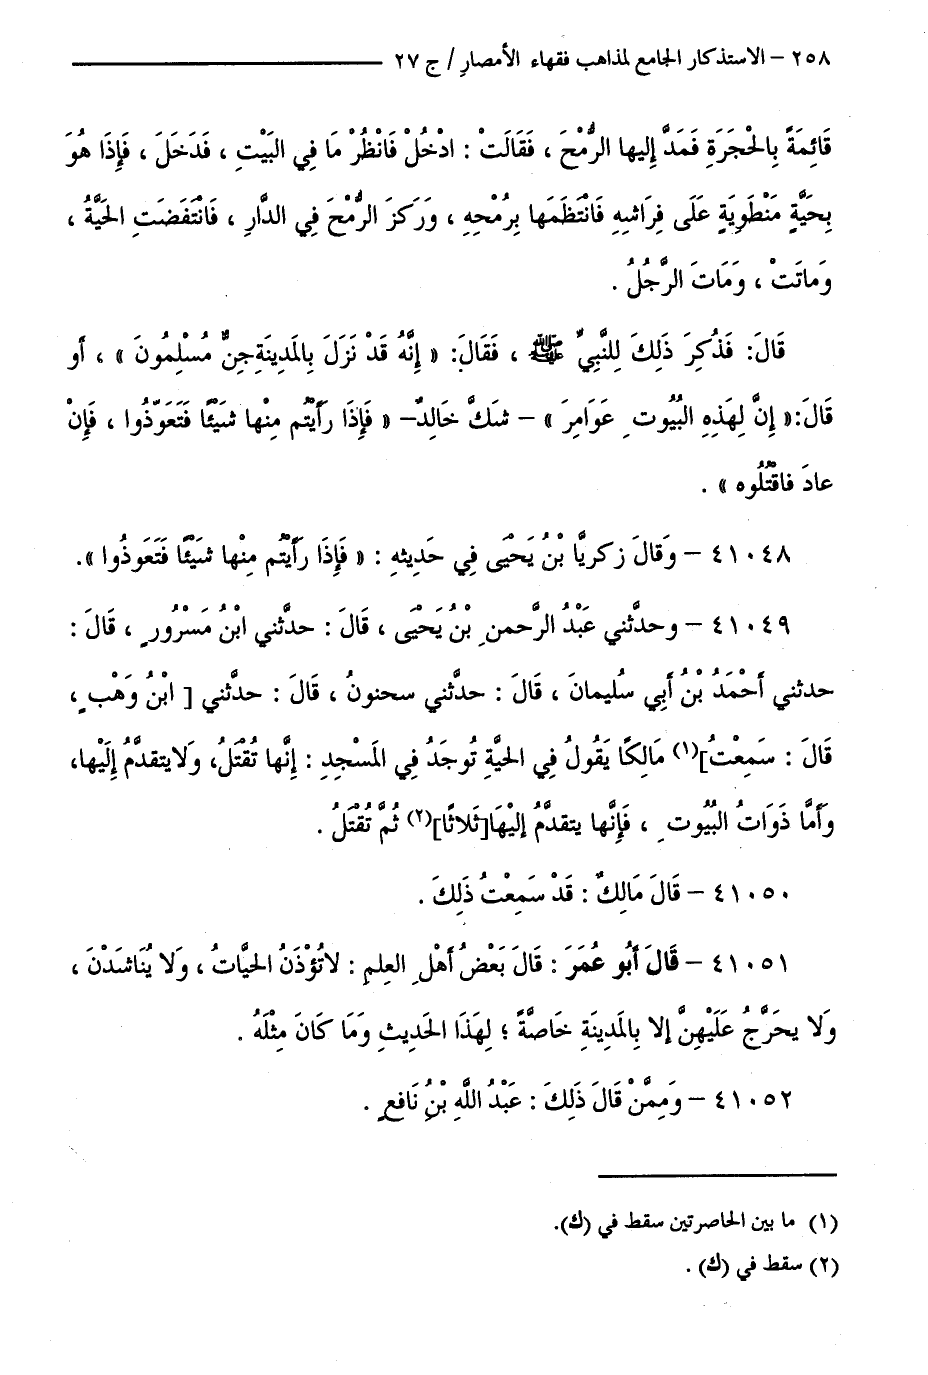 ٢٥٨ – الاستذكار الجامع لمذاهب فقهاء الأمصار / ج ٢٧
قَائِمَةً بِالْحُجَرَةِ فَمَدَّ إِليها الرُّمْحَ ، فَقَالَتْ : ادْخُلْ فَانْظُرْ مَا فِي البَيْتِ ، فَدَخَلَ ، فَإِذَا هُوَ
بِحَيَّةٍ مَنْطَوِيَةٍ عَلَى فِرَاشِهِ فَانْتَظَمَها بِرُمْحِهِ ، وَرَكزَ الرُّمْحَ فِي الدَّارِ ، فَانْتَفَضَتِ الحَيَّةُ ،
وَماتَتْ ، وَمَاتَ الرَّجُلُ .
قَالَ: فَذُكِرَ ذَلِكَ لِلنَّبِيِّ ﷺ ، فَقَالَ: « إِنَّهُ قَدْ نَزَلَ بِالمَدِينَةِ جِنٌّ مُسْلِمُونَ » ، أَو
قَالَ:« إِنَّ لِهَذِهِ البُيُوتِ عَوَامِرَ » – شَكَّ خَالِدٌ– « فَإِذَا رَأَيْتُم مِنْها شَيْئًا فَتَعَوَّذُوا ، فَإِنْ
عادَ فاقْتُلُوه » .
٤١٠٤٨ – وَقالَ زكريَّا بْنُ يَحْيَى فِي حَدِيثِهِ : « فَإِذَا رَأَيْتُم مِنْها شَيْئًا فَتَعَوذُوا ».
٤١٠٤٩ – وحدَّثني عَبْدُ الرَّحمنِ بْنُ يَحْيَى ، قَالَ : حدَّثني ابْنُ مَسْرُورٍ ، قَالَ :
حدثني أَحْمَدُ بْنُ أَبِي سُليمانَ ، قَالَ : حدَّثني سحنونُ ، قَالَ : حدَّثني [ ابْنُ وَهْبٍ ،
قَالَ : سَمِعْتُ](١) مَالِكًا يَقُولُ فِي الحيَّةِ تُوجَدُ فِي المَسْجِدِ : إِنَّها تُقْتَلُ، وَلايتقدَّمُ إِلَيْها،
وَأَمَّا ذَوَاتُ البُيُوتِ ، فَإِنَّها يتقدَّمُ إِليْهَا[ثَلاثًا](٢) ثُمَّ تُقْتَلُ .
٤١٠٥٠ – قَالَ مَالِكٌ : قَدْ سَمِعْتُ ذَلِكَ .
٤١٠٥١ – قَالَ أَبُو عُمَرَ : قَالَ بَعْضُ أَهْلِ العِلمِ : لاتُؤْذَنُ الحيَّاتُ ، وَلا يُنَاشَدْنَ ،
وَلا يحَرَّجُ عَلَيْهِنَّ إلا بِالمَدِينَةِ خَاصَّةً ؛ لِهَذَا الحَدِيثِ وَمَا كَانَ مِثْلَهُ .
٤١٠٥٢ – وَمِمَّنْ قَالَ ذَلِكَ : عَبْدُ اللَّهِ بْنُ نَافعٍ .
(١) ما بين الحاصرتين سقط في (ك).
(٢) سقط في (ك) .